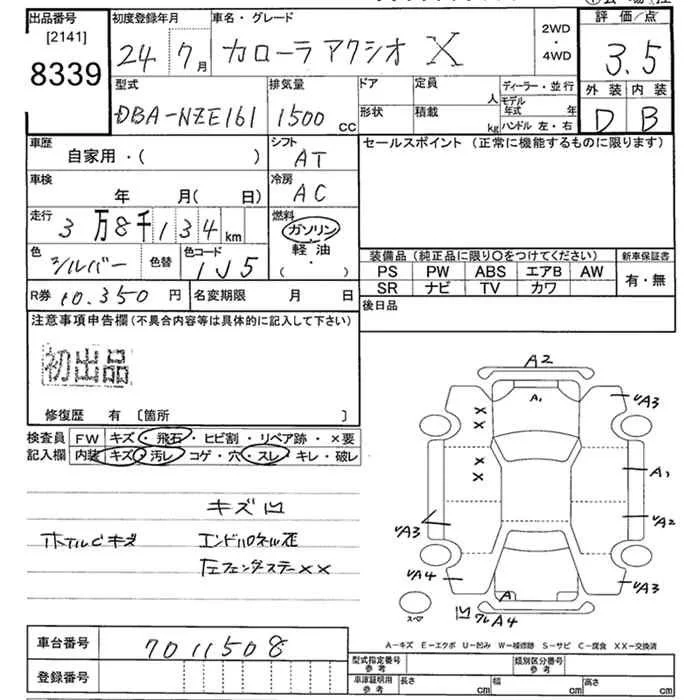 出品番号
[2141]
8339
初度登録年月
24 7月
車名・グレード
カローラアクシオ X
2WD
・
4WD
評価/点
3.5
外装 内装
D B
型式
DBA-NZE161
排気量
1500 CC
ドア
形状
定員
人
積載
kg
ディーラー・並行
モデル年式 年
ハンドル 左・右
車歴
自家用・( )
シフト
AT
車検
年 月(日)
冷房
AC
走行
3万8千134km
燃料
ガソリン
軽油
(・)
色
シルバー
色替
色コード
1J5
R券 10.350円
名変期限 月 日
セールスポイント (正常に機能するものに限ります)
装備品 (純正品に限り〇をつけてください)
PS PW ABS エアB AW
SR ナビ TV カワ
新車保証書
有・無
後日品
注意事項申告欄(不具合内容等は具体的に記入して下さい)
初出品
修復歴 有 [箇所 ]
検査員
記入欄
FW キズ・飛石・ヒビ割・リペア跡・×要
内装 キズ・汚レ・コゲ・穴・スレ・キレ・破レ
キズ凹
ホイルビキズ
エンドパネル歪
左フェンダステー××
A2
A1
A3
A3
A1
A2
A3
A4
A3
A
A4
スペア
A-キズ E-エクボ U-凹み W-補修跡 S-サビ C-腐食 XX-交換済
車台番号 7011508
登録番号
型式指定番号
参考
類別区分番号
参考
車庫証明用
参考
長さ cm 幅 cm 高さ cm